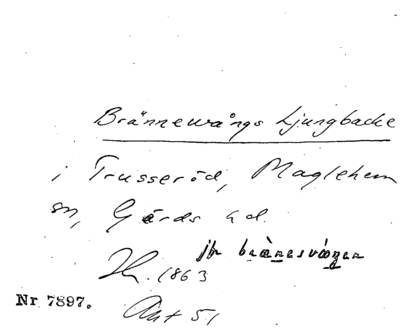 Brännewångs Ljungbacke
i Trusseröd, Maglehem
sn, Gärds hd.
jfr brànesvàngen
1863
Nr 7897. Akt 51